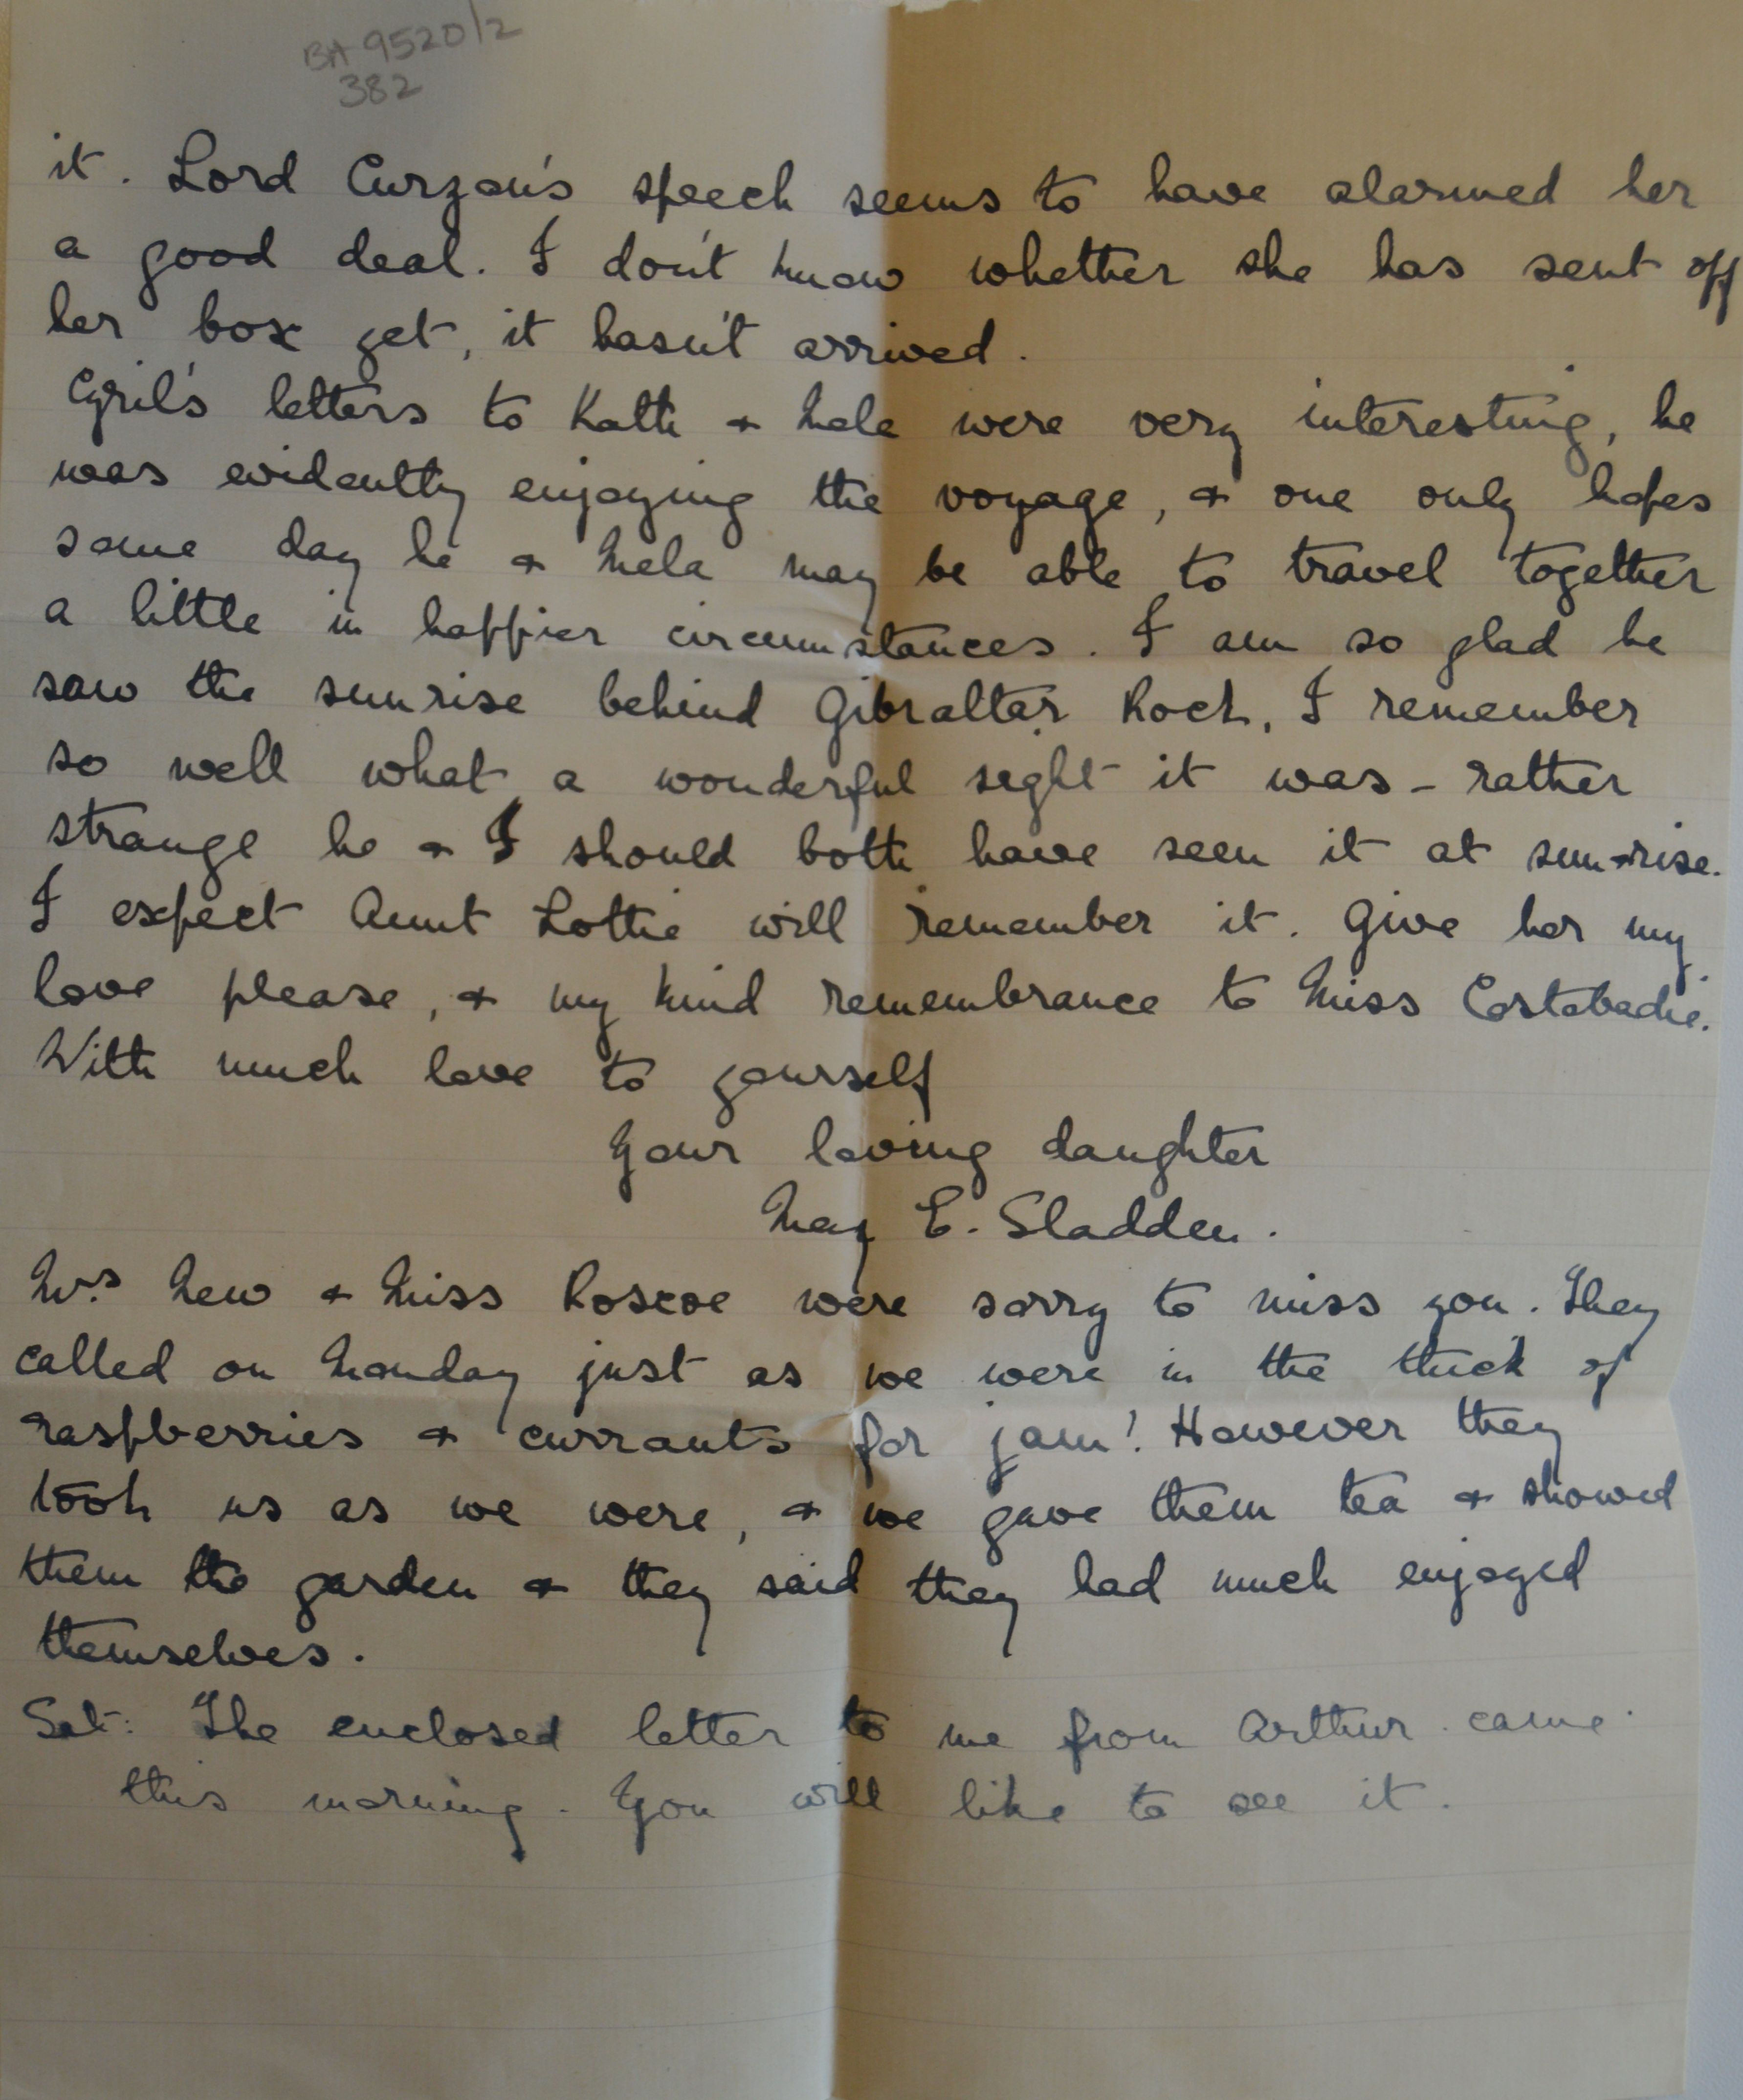 BA 9520/2
382
it. Lord Curzon's speech seems to have alarmed her
a good deal. I don't know whether she has sent off
her box yet, it hasn't arrived.
Cyril's letters to Kath & Mela were very interesting, he
was evidently enjoying the voyage, & one only hopes
some day he & Mela may be able to travel together
a little in happier circumstances. I am so glad he
saw the sunrise behind Gibraltar Rock, I remember
so well what a wonderful sight it was - rather
strange he & I should both have seen it at sun-rise.
I expect Aunt Lottie will remember it. Give her my
love please, & my kind remembrance to Miss Costabadie.
With much love to yourself
Your loving daughter
May E. Sladden.
Mrs New & Miss Roscoe were sorry to miss you. They
called on Monday just as we were in the thick of
raspberries & currants for jam! However they
took us as we were, & we gave them tea & showed
them the garden & they said they had much enjoyed
themselves.
Sat: The enclosed letter to me from Arthur came
this morning. You will like to see it.